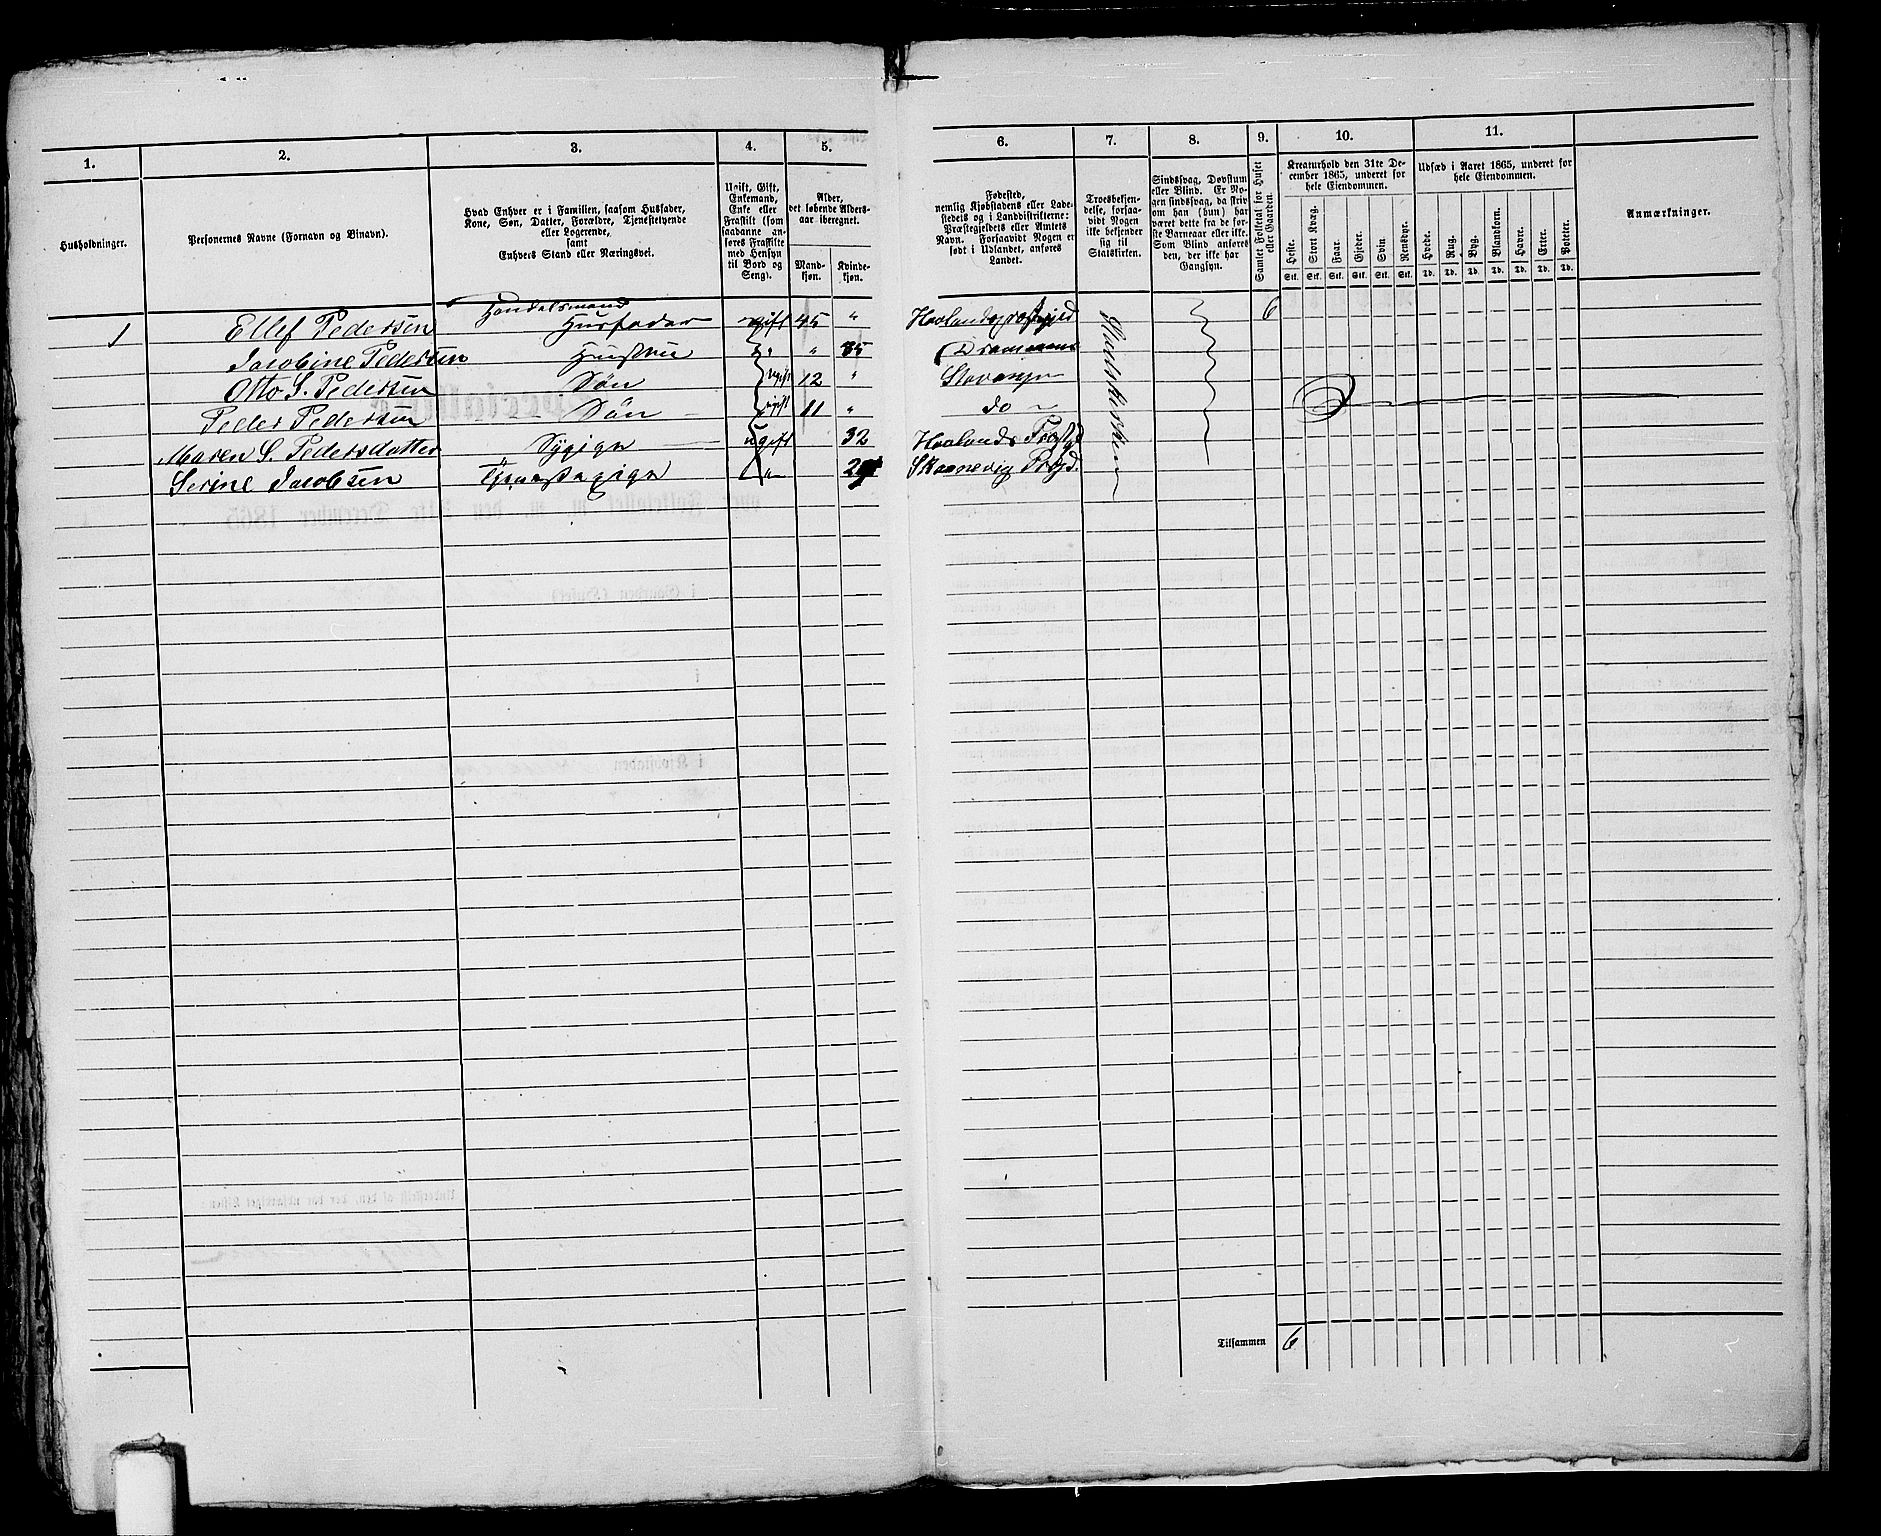 1. 2. 3. 4. 5. 6. 7. 8. 9. 10. 11.
Husholdninger.
Personernes Navne (Fornavn og Binavn).
Hvad Enhver er i Familien, saasom Husfader,
Kone, Søn, Datter, Forældre, Tjenestetyende
eller Logerende,
samt
Enhvers Stand eller Næringsvei.
Ugift, Gift,
Enkemand,
Enke eller
Fraskilt (som
saadanne an-
føres Fraskilte
med Hensyn
til Bord og
Seng).
Alder,
det løbende Alders-
aar iberegnet.
Mand-
kjøn.
Kvinde-
kjøn.
Fødested,
nemlig Kjøbstadens eller Lade-
stedets og i Landdistrikterne:
Præstegjeldets eller Amtets
Navn. Forsaavidt Nogen er
født i Udlandet, anføres
Landet.
Troesbekjen-
delse, forsaa-
vidt Nogen
ikke bekjender
sig til
Statskirken.
Sindssvag, Døvstum
eller Blind. Er No-
gen sindssvag, da skriv
om han (hun) har
været dette fra de før-
ste Barneaar eller ikke.
Som Blind anføres
den, der ikke har
Gangsyn.
Samlet Folketal for Huset
eller Gaarden.
Kreaturhold den 31te De-
cember 1865, underet for
hele Eiendommen.
Heste. Stort Kvæg. Faar. Gjeder. Svin. Rensdyr.
Stk. Stk. Stk. Stk. Stk. Stk.
Udsæd i Aaret 1865, underet for
hele Eiendommen.
Hvede. Rug. Byg. Blandkorn. Havre. Erter. Poteter.
Td. Td. Td. Td. Td. Td. Td.
Anmærkninger.
Handelsmand
1 Ellef Pedersen Husfader gift 45 " 6
Jacobine Pedersen Hustru " " 35 Drammen
Otto S. Pedersen Søn ugift 12 " Stavanger
Peder Pedersen Søn ugift 11 " do
Maren S. Pedersdatter Sypige ugift 32 Haalands
Serine Jacobsen Tjenestepige " Skaanevig
Statskirken
Tilsammen 6